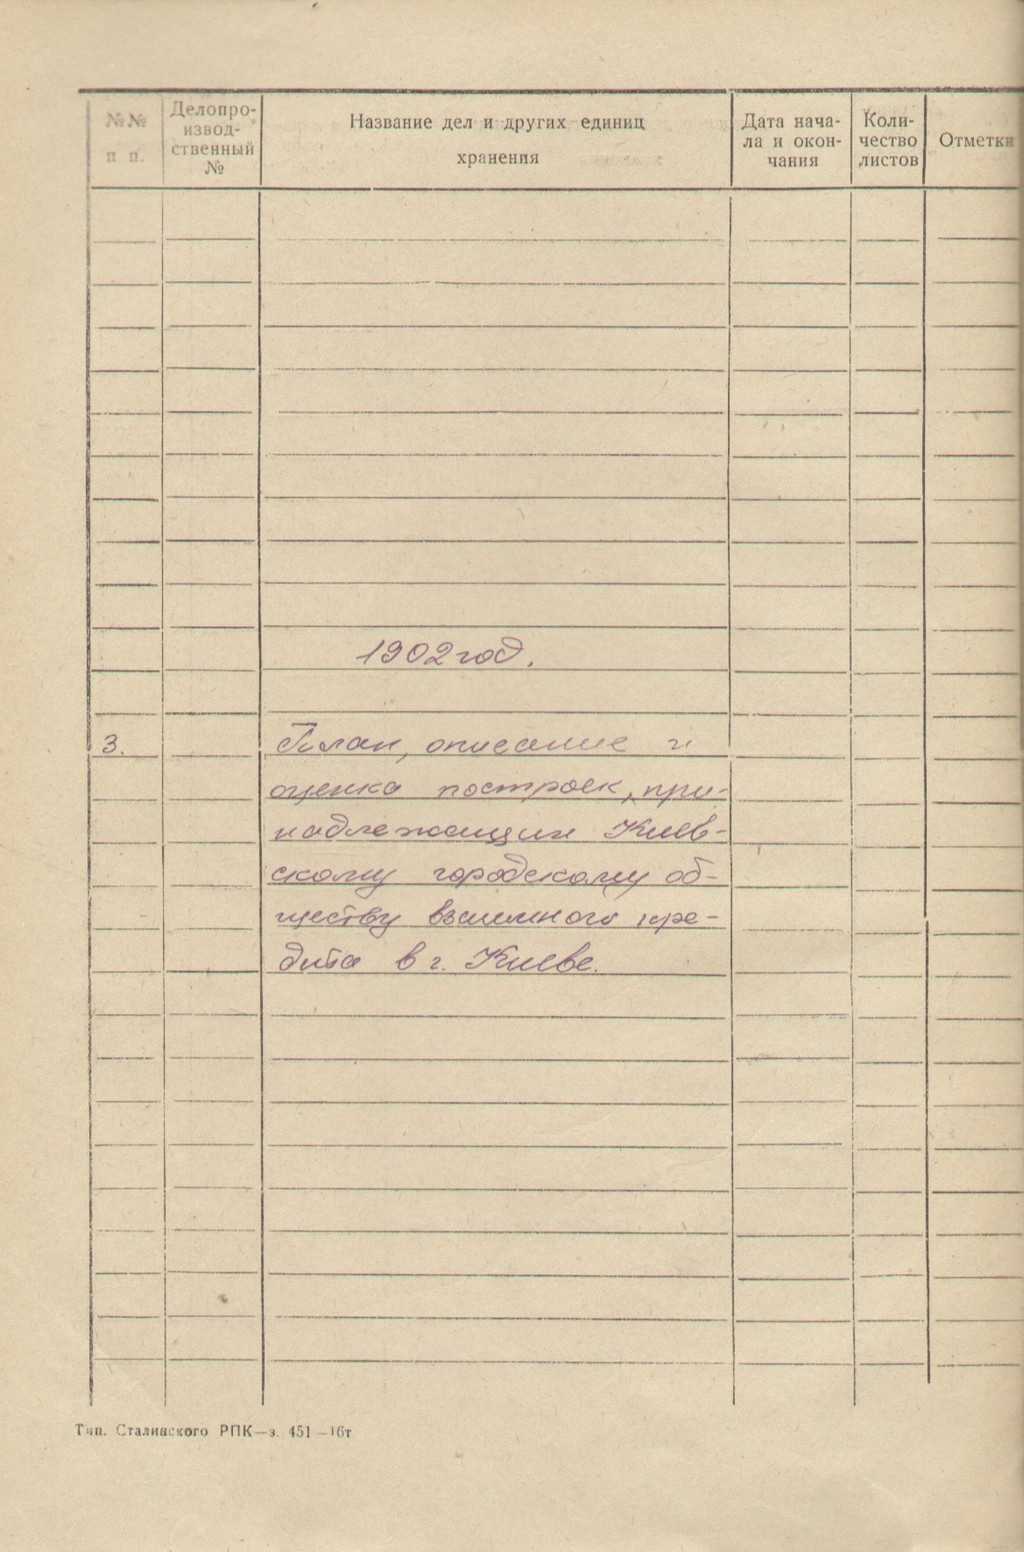 №№ п п.
Делопро-
извод-
ственный
№
Название дел и других единиц
хранения
Дата нача-
ла и окон-
чания
Коли-
чество
листов
Отметки
1902 год.
3. План, описание и
оценка построек, при-
надлежащих Киев-
скому городскому об-
ществу взаимного кре-
дита в г. Киеве.
Тип. Сталинского РПК—з. 451—16т